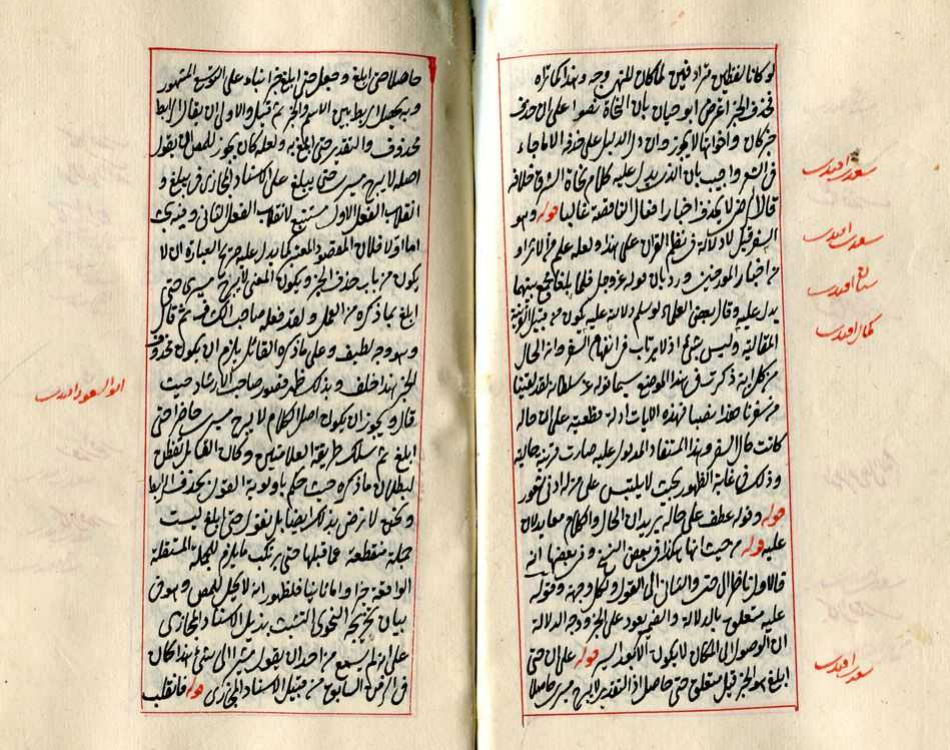 لو كانا لفظين مترادفين لما كان للنهى وجه وبهذا كما تراه
فحذف الخبر اعترض ابو حيان بان النحاة نصوا على ان حذف
خبر كان واخواتها لا يجوز وان دل الدليل على حذفه الا ما جاء
فى الشعر واجيب بان الذى يدل عليه كلام نحاة الشرق خلافه
قال لا يحذف اخبار افعال الناقصة غالبا قوله وهو
السفر قيل لا دلالة فى نظم القران على هذا ولعله علم من الاثر او
من اخبار المورخين ورد بان قوله عز وجل فلما بلغا مجمع بينهما
يدل عليه وقال بعض العلماء لو سلم دلالته عليه يكون من قبيل القرينة
المقالية وليس بشئ اذ لا يرتاب فى انفهام السفر وانه الحال
من كل اية ذكرت فى هذا الموضع سيما قوله عز سلطانه لقد لقينا
من سفرنا هذا نصبا فهذه الايات ادلة قطعية على ان حاله
كانت حال السفر وهذا المستفاد المدلول عليه صارت قرينة حالية
وذلك فى غاية الظهور بحيث لا يلتبس على من له ادنى شعور
قوله وقوله عطف على حاله يريد ان الحال والكلام معا يدلان
عليه قوله من حيث انها هكذا فى بعض النسخ وفى بعضها انه
فالاول ناظر الى حتى والثانى الى القول ولكل وجهة وقوله
عليه متعلق بالدلالة والضمير يعود على الخبر ووجه الدلالة
ان الوصول الى المكان لا يكون الا بعد السير قوله على ان حتى
ابلغ هو الخبر قيل متعلق حتى حاصل اذ التقدير لا يبرح مسيرى حاصلا
سعدى افندى
سعدى افندى
سنان افندى
كمال افندى
سعدى افندى
حاصلا حتى ابلغ وجعل حتى ابلغ خبرا بناء على التوسع المشهور
وبه يحصل الربط بين الاسم والخبر ثم قيل والاولى ان يقال الرابط
محذوف والتقدير حتى ابلغ به ولعله كان يجوز للمص ان يقول
اصله لا يبرح مسيرى حتى يبلغ على الاسناد المجازى فى يبلغ و
انقلاب الفعل الاول مستتبع لانقلاب الفعل الثانى وفيه بحث
اما اولا فلان المقصود المعتبر كما يدل عليه صريح العبارة ان لا
يكون من باب حذف الخبر ويكون المعنى لا يبرح مسيرى حتى
ابلغ بما ذكره من العمل ولقد فعله صاحب الكشف ثم قال
وهو وجه لطيف وعلى ما ذكره القائل يلزم ان يكون محذوف
الخبر هذا خلف وبذلك ظهر قصور صاحب الارشاد حيث
قال ويجوز ان يكون اصل الكلام لا يبرح مسيرى حاضرا حتى
ابلغ ثم سلك طريقة العلامتين وكان القائل تفطن
لبطلان ما ذكره حيث حكم باولوية القول بحذف الرابط
ونحن لا نرضى بذلك ايضا بل نقول حتى ابلغ ليست
جملة منقطعة عما قبلها حتى يرتكب ما يلزم للجملة المستقلة
الواقعة خبرا واما ثانيا فلظهور انه لا يحل للمص وهو فى
بيان تخريجه النحوى التشبث بذيل الاسناد المجازى
على انه لم يسمع من احد ان يقول مشيرا الى شئ بهذا كان
فى الزمن السابق من قبيل الاسناد المجازى قوله فانقلب
ابو السعود افندى